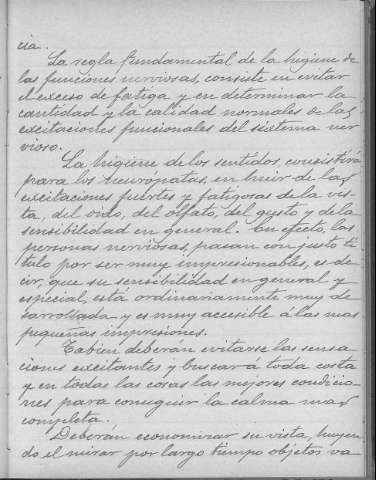 cia.
La regla fundamental de la higiene de
las funciones nerviosas, consiste en evitar
el exceso de fatiga y en determinar la
cantidad y la calidad normales de las
excitaciones funcionales del sistema ner
vioso.
La higiene de los sentidos consistirá
para los neurópatas, en huir de las
excitaciones fuertes y fatigosas de la vis-
ta, del oido, del olfato, del gusto y de la
sensibilidad en general. En efecto, las
personas nerviosas, pasan con justo tí
tulo por ser muy impresionables, es de-
cir, que su sensibilidad en general y
especial, está ordinariamente muy de
sarrollada y es muy accesible á las mas
pequeñas impresiones.
Tabien deberán evitarse las sensa
ciones excitantes y buscará toda costa
y en todas las cosas las mejores condicio-
nes para conseguir la calma mas
completa.
Deberán economizar su vista, huyen
do el mirar por largo tiempo objetos va